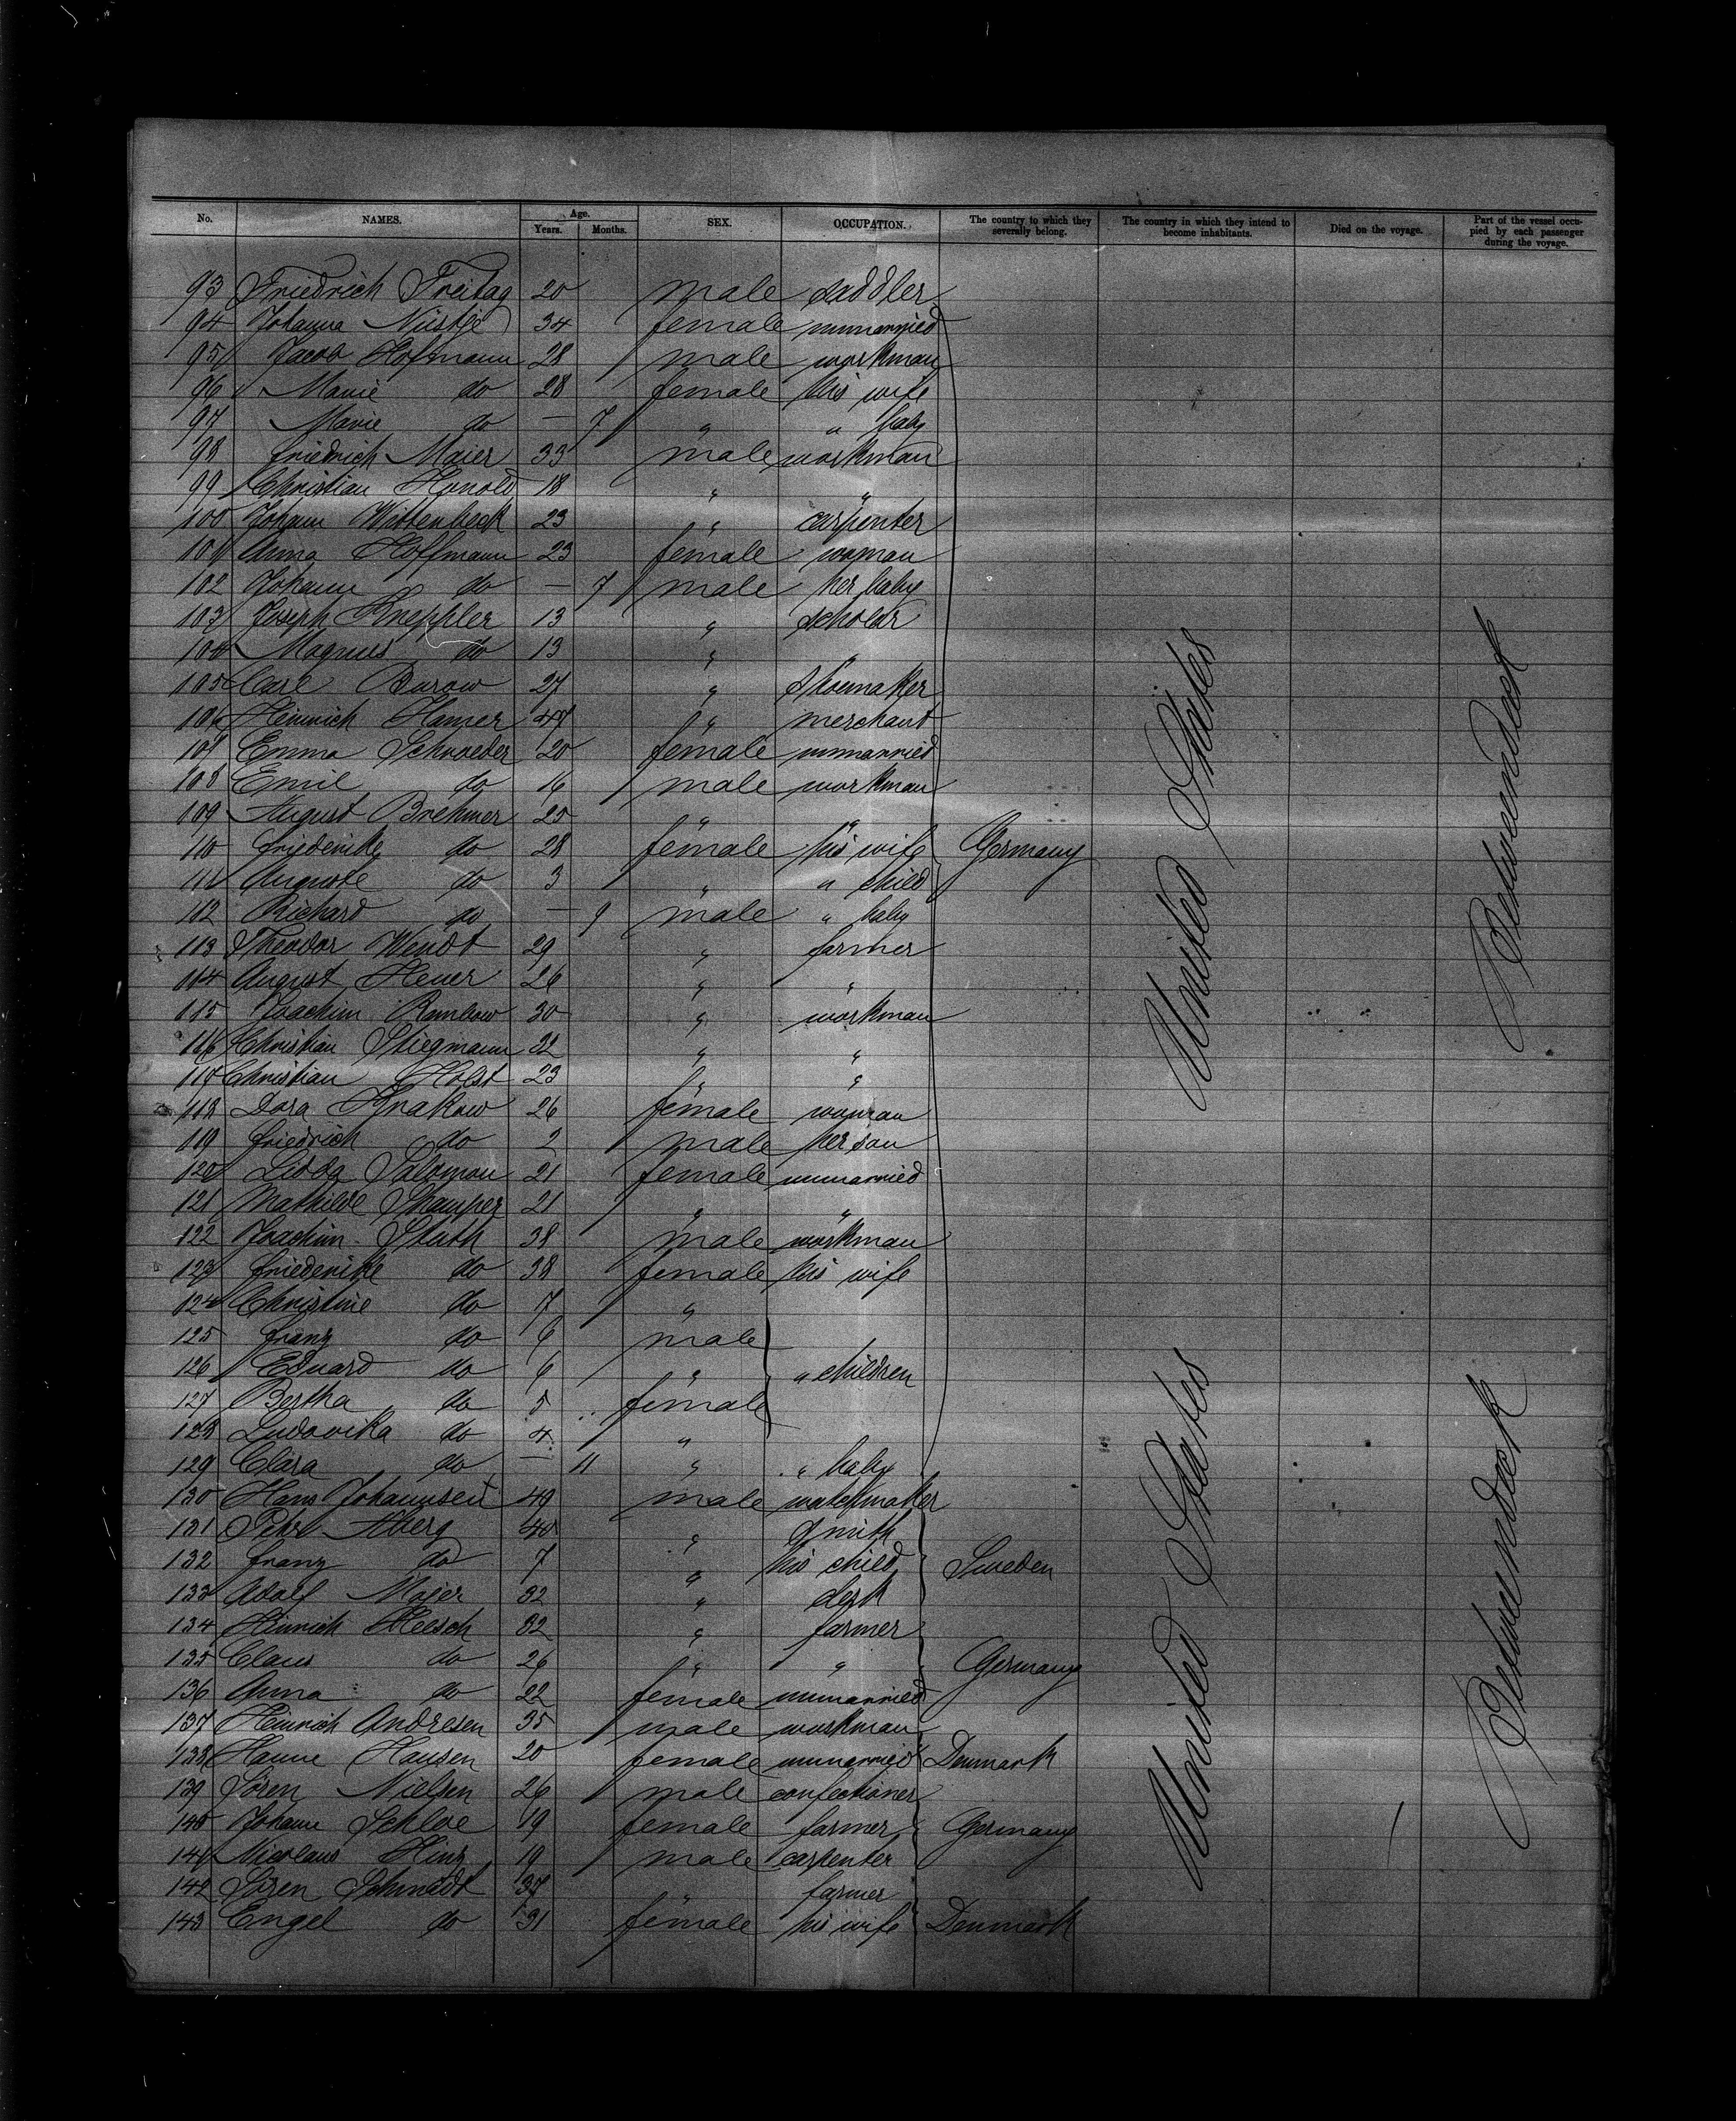 No. NAMES. Age. Years. Months. SEX. OCCUPATION. The country to which they severally belong. The country in which they intend to become inhabitants. Died on the voyage. Part of the vessel occupied by each passenger during the voyage.
93 Friedrich Freitag 20 male saddler
94 Johanna 34 female unmarried
95 Jacob Hofmann 28 male workman
96 Marie do 28 female his wife
97 Marie do — 7 " " baby
98 Friedrich Maier 33 male workman
99 Christian Honold 18 " "
100 Johann Wittenbeck 23 " carpenter
101 Anna Hoffmann 23 female woman
102 Johann do — 7 male her baby
103 Joseph Kneppler 13 " scholar
104 Magnus do 13 " "
105 Carl Burow 27 " Shoemaker
106 Heinrich Hamer 47 " merchant
107 Emma Schroeder 20 female unmarried
108 Emil do 16 male workman
109 August Brehmer 25 " "
110 Friederike do 28 female his wife Germany
111 Auguste do 3 " " child
112 Richard do — 9 male " baby
113 Theodor Wendt 29 " farmer
114 August Heuer 26 " "
115 Joachim Rambow 30 " workman
116 Christian Stiegmann 32 " "
117 Christian Holst 23 " "
118 Dora Knakow 26 female woman
119 Friedrich do 2 male her son
120 Lidda Salomon 21 female unmarried
121 Mathilde 21 " "
122 Joachim Stuth 38 male workman
123 Friederike do 38 female his wife
124 Christine do 7 "
125 Franz do 6 male
126 Eduard do 6 " " children
127 Bertha do 5 female
128 Ludovika do 4 "
129 Clara do — 11 " " baby
130 Hans Johannsen 49 male watchmaker
131 Pehr Aberg 40 " Smith
132 Franz do 7 " his child Sweden
133 Adolf Majer 32 " clerk
134 Hinrich Reesch 32 " farmer
135 Claus do 26 " " Germany
136 Anna do 22 female unmarried
137 Heinrich Andresen 35 male workman
138 Hanne Hansen 20 female unmarried Denmark
139 Sören Nielsen 26 male confectioner
140 Johann Schloe 19 female farmer Germany
141 Nicolaus Hinz 19 male carpenter
142 Sören Schmidt 37 " farmer
143 Engel do 31 female his wife Denmark
United States
United States
Betweendeck
Betweendeck